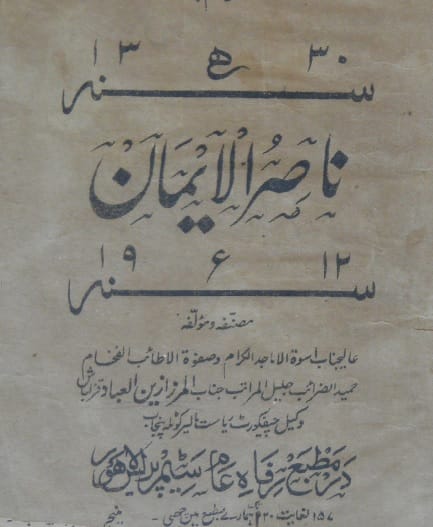 ۱۳ ھ ۳۰
سنہ
ناصر الایمان
۱۹ ۶ ۱۲
سنہ
مصنّفہ و مؤلّفہ
عالیجناب اسوۃ الاماجد الکرام و صفوۃ الاطائب الفخام
حمید الضرائب جلیل المراتب جناب المرزا زین العباد قزلباش
وکیل چیفکورٹ ریاست مالیر کوٹلہ پنجاب
در مطبع رفاہ عام سٹیم پریس لاہور
۱۵۷ لغایت ۴۲۰ ہمارے مطبع میں چھپی - منیجر